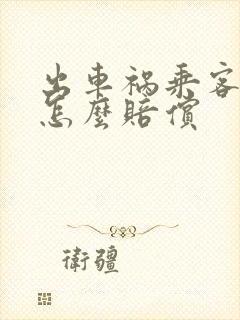 出車禍乘客
怎麼賠償
衛疆